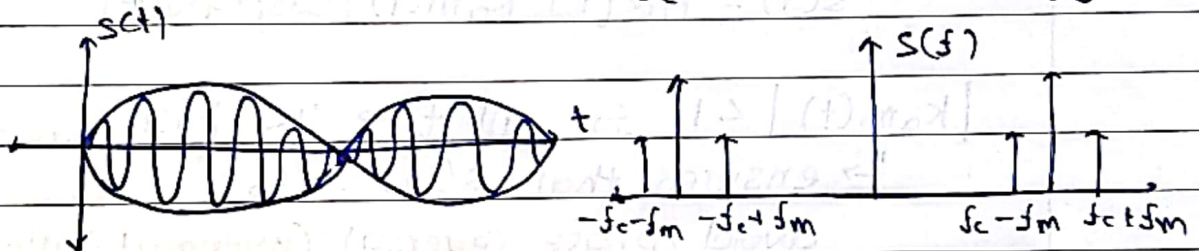 s(t)
S(f)
t
-fc-fm -fc+fm fc-fm fc+fm